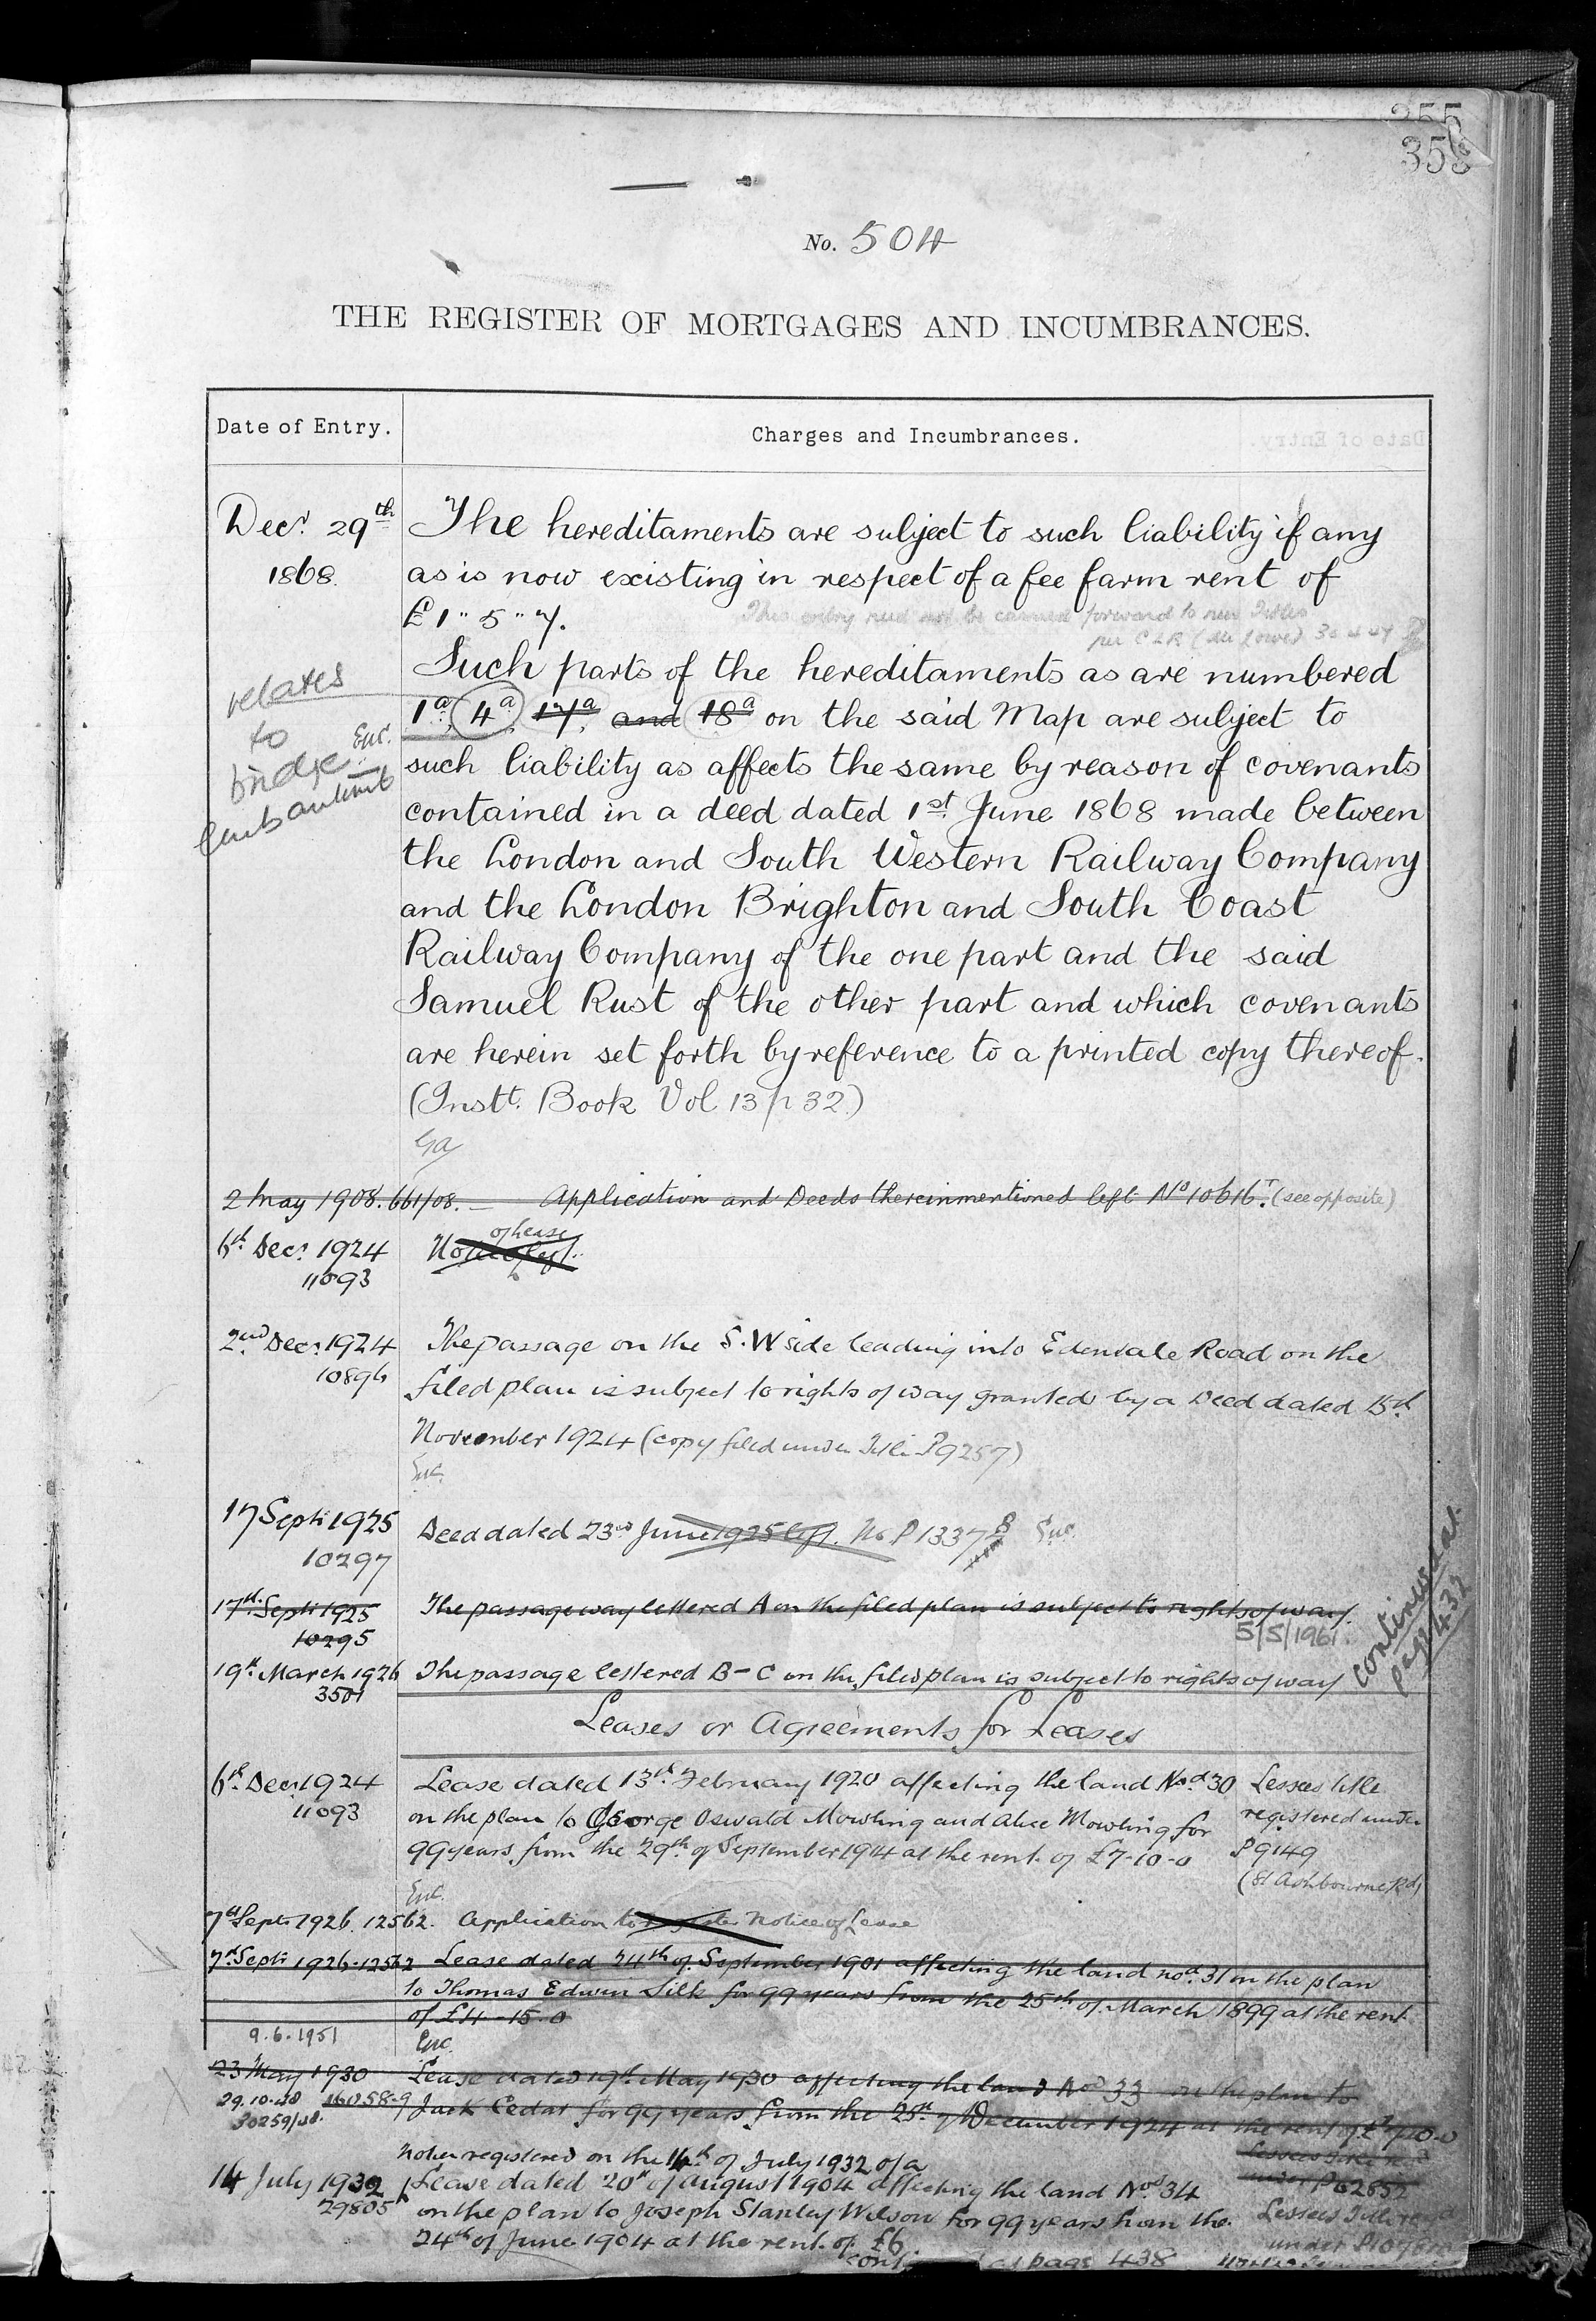 355
353
No. 504
THE REGISTER OF MORTGAGES AND INCUMBRANCES.
Date of Entry.
Charges and Incumbrances.
Decr. 29th 1868.
The hereditaments are subject to such liability if any
as is now existing in respect of a fee farm rent of
£1 " 5 " 7.
This entry need not be carried forward to new Titles
per C L R
Such parts of the hereditaments as are numbered
1a, 4a, 17a, and 18a on the said Map are subject to
relates
to
bridge
Enc.
embankmt
such liability as affects the same by reason of covenants
contained in a deed dated 1st June 1868 made between
the London and South Western Railway Company
and the London Brighton and South Coast
Railway Company of the one part and the said
Samuel Rust of the other part and which covenants
are herein set forth by reference to a printed copy thereof.
(Instt. Book Vol 13 p 32.)
2 May 1908. 661/08. — Application and Deeds therein mentioned left No 10616T. (see opposite)
6th Decr. 1924
11093
of Lease
Notice left.
2nd Decr. 1924
10896
The passage on the S.W side leading into Edenvale Road on the
filed plan is subject to rights of way granted by a Deed dated 15th
November 1924 (copy filed under Title P9257)
Enc.
17 Septr 1925
10297
Deed dated 23rd June 1925 left. No. P1337 Enc.
17th Septr 1925
10295
The passage way lettered A on the filed plan is subject to rights of way.
5/5/1961.
19th March 1926
3501
The passage lettered B–C on the filed plan is subject to rights of way
continued at
page 432
Leases or Agreements for Leases
6th Decr. 1924
11093
Lease dated 13th February 1920 affecting the land Nod 30
on the plan to George Oswald Mowling and Alice Mowling for
99 years from the 29th of September 1914 at the rent of £7-10-0
Enc.
Lessees title
registered under
P9149
(81 Ashbourne Rd)
7th Septr 1926. 12562. Application to register Notice of Lease
7th Septr 1926. 12562 Lease dated 24th of September 1901 affecting the land nod. 31 on the plan
to Thomas Edwin Silk for 99 years from the 25th of March 1899 at the rent
of £4-15-0
Enc.
9.6.1951
23 May 1930
Lease dated 19th May 1930 affecting the land Nod 33 on the plan to
29.10.48
30259/48.
Jack Cedar for 99 years from the 25th of December 1924 at the rent of £7-10-0
Lessees title
under P62852
Notice registered on the 14th of July 1932 of a
14 July 1932
29805
Lease dated 20th of August 1904 affecting the land Nod 34
on the plan to Joseph Stanley Wilson for 99 years from the
24th of June 1904 at the rent of £6.
Lessees Title regd
under
at page 438